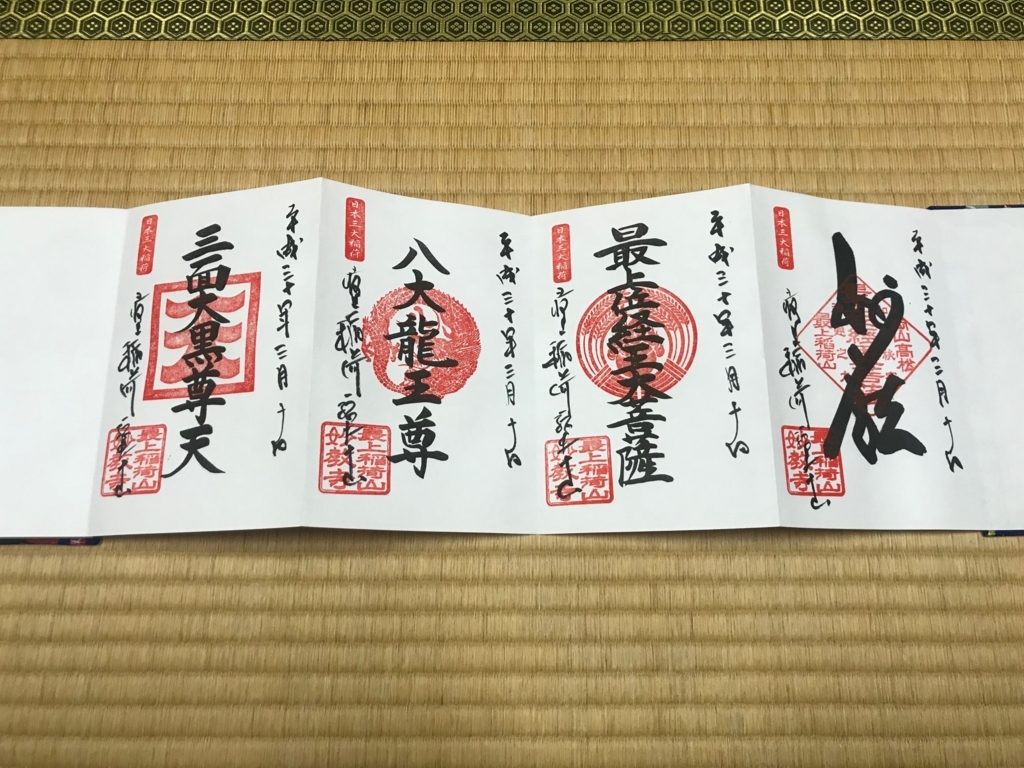 平成三十年三月十日
妙法
日本三大稲荷
最上稲荷山
妙教寺
平成三十年三月十日
最上位経王大菩薩
日本三大稲荷
最上稲荷山
妙教寺
平成三十年三月十日
八大龍王尊
日本三大稲荷
最上稲荷山
妙教寺
平成三十年三月十日
三面大黒尊天
日本三大稲荷
最上稲荷山
妙教寺